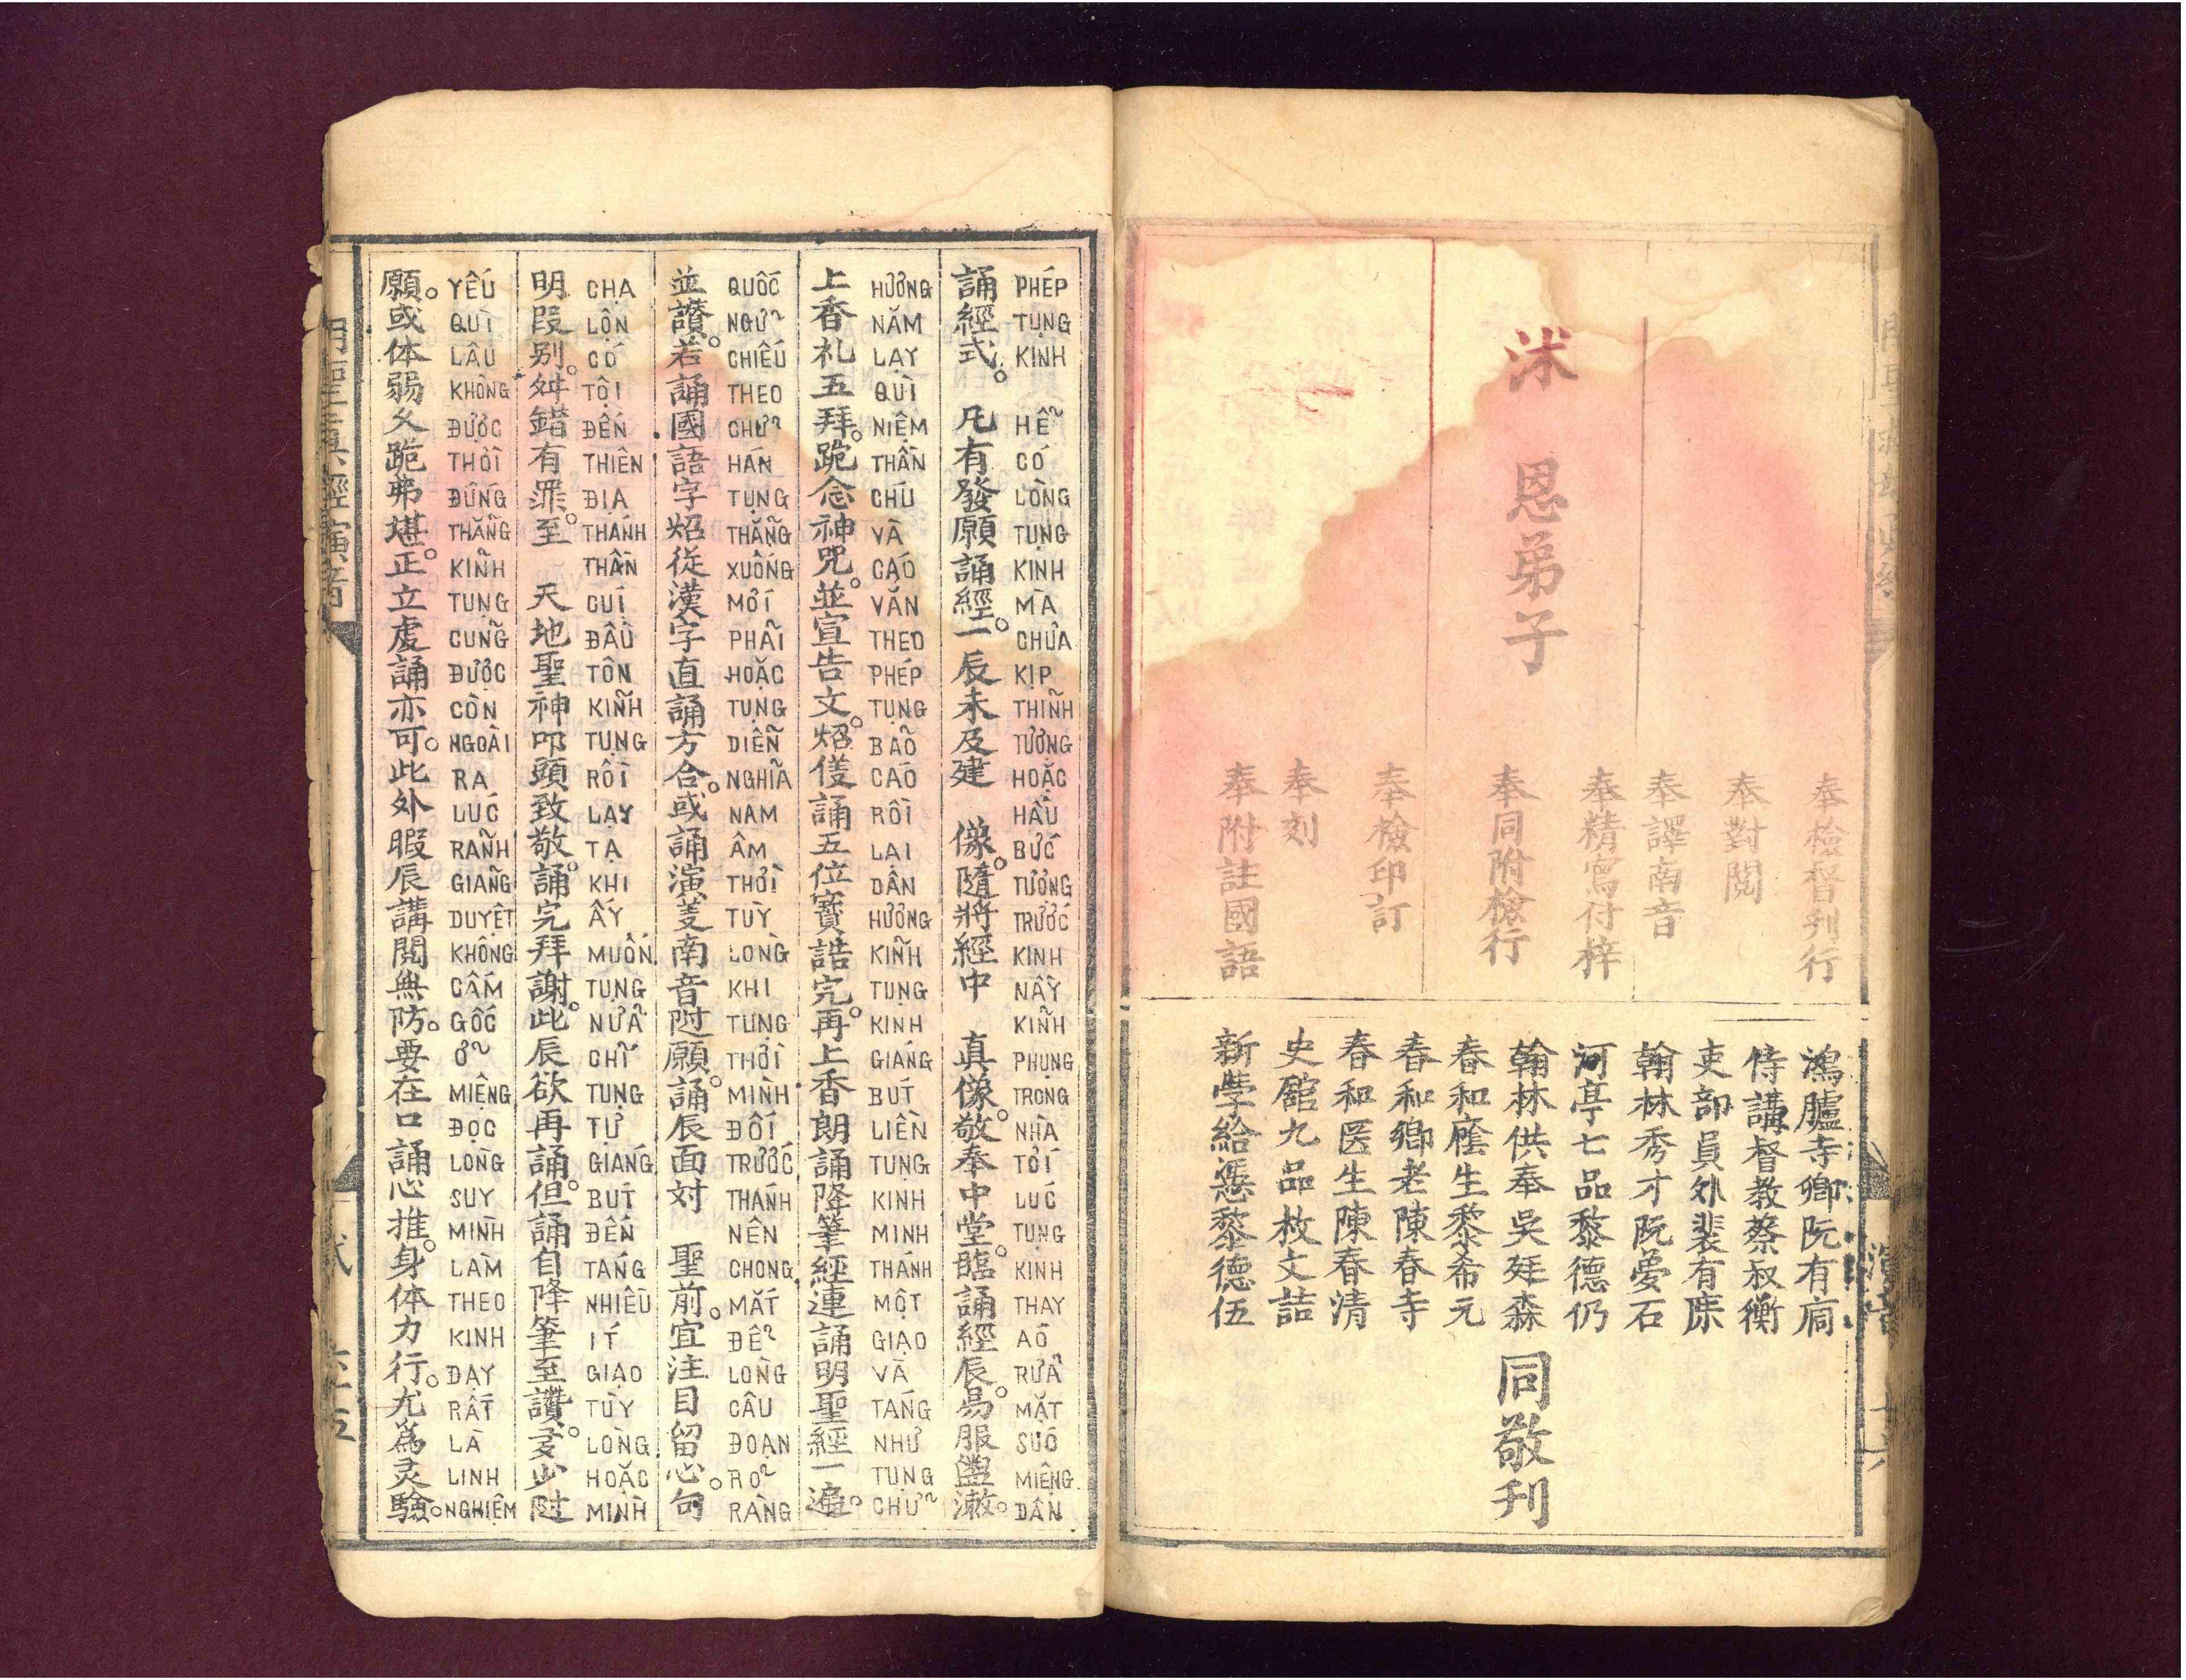 沭恩弟子
奉檢督刊行
奉對閱
奉譯南音
奉精寫付梓
奉同附檢行
奉檢印訂
奉刻
奉附註國語
鴻臚寺卿阮有
侍講督教蔡叔衡
吏部員外裴有
翰林秀才阮夢石
河亭七品黎德仍
翰林供奉吳廷森
春和廕生黎希元
春和鄉老陳春寺
春和医生陳春清
史舘九品枚文詰
新學給憑黎德伍
同敬刊
演音
十六
誦經式。 凡有發願誦經。一辰未及建 像。隨將經中 真像。敬奉中堂。臨誦經辰。易服盥漱。
PHÉP TỤNG KINH HỄ CÓ LÒNG TỤNG KINH MÀ CHƯA KỊP THỈNH TƯỢNG HOẶC HẦU BỨC TƯỢNG TRƯỚC KINH NẦY KÍNH PHỤNG TRONG NHÀ TỚI LÚC TỤNG KINH THAY ÁO RỬA MẶT SÚC MIỆNG DÂN
上香礼五拜。跪念神咒。並宣告文。炤仪誦五位寳誥完。再上香朗誦降筆經連誦明聖經一遍。
HƯƠNG NĂM LẠY QUÌ NIỆM THẦN CHÚ VÀ CÁO VĂN THEO PHÉP TỤNG BẢO CÁO RỒI LẠI DÂN HƯƠNG KÍNH TỤNG KINH GIÁNG BÚT LIỀN TỤNG KINH MINH THÁNH MỘT GIẠO VÀ TÁNG NHƯ TỤNG CHỮ
並讃。若誦國語字炤從漢字直誦方合。或誦演義南音隨願。誦辰面对 聖前。宜注目留心。句
QUỐC NGỮ CHIẾU THEO CHỮ HÁN TỤNG THẲNG XUỐNG MỚI PHẢI HOẶC TỤNG DIỄN NGHĨA NAM ÂM THỜI TÙY LÒNG KHI TỤNG THỜI MÌNH ĐỐI TRƯỚC THÁNH NÊN CHONG MẮT ĐỂ LÒNG CÂU ĐOẠN RỎ RÀNG
明段别。舛錯有罪。至 天地聖神叩頭致敬。誦完拜謝。此辰欲再誦。但誦自降筆至讚。多少隨
CHẠ LỘN CÓ TỘI ĐẾN THIÊN ĐỊA THÁNH THẦN CÚI ĐẦU TÔN KÍNH TỤNG RỒI LẠY TẠ KHI ẤY MUỐN TỤNG NỬA CHỈ TỤNG TỰ GIÁNG BÚT ĐẾN TÁNG NHIỀU ÍT GIẠO TÙY LÒNG HOẶC MÌNH
願。或体弱久跪弗堪。正立處誦亦可。此外暇辰講閱無防。要在口誦心推。身体力行。尤為灵驗。
YẾU QUÌ LÂU KHÔNG ĐƯỢC THỜI ĐỨNG THẲNG KÍNH TỤNG CŨNG ĐƯỢC CÒN NGOÀI RA LÚC RẢNH GIẢNG DUYỆT KHÔNG CẤM GỐC Ở MIỆNG ĐỌC LÒNG SUY MÌNH LÀM THEO KINH DẠY RẤT LÀ LINH NGHIỆM
明聖真經演音